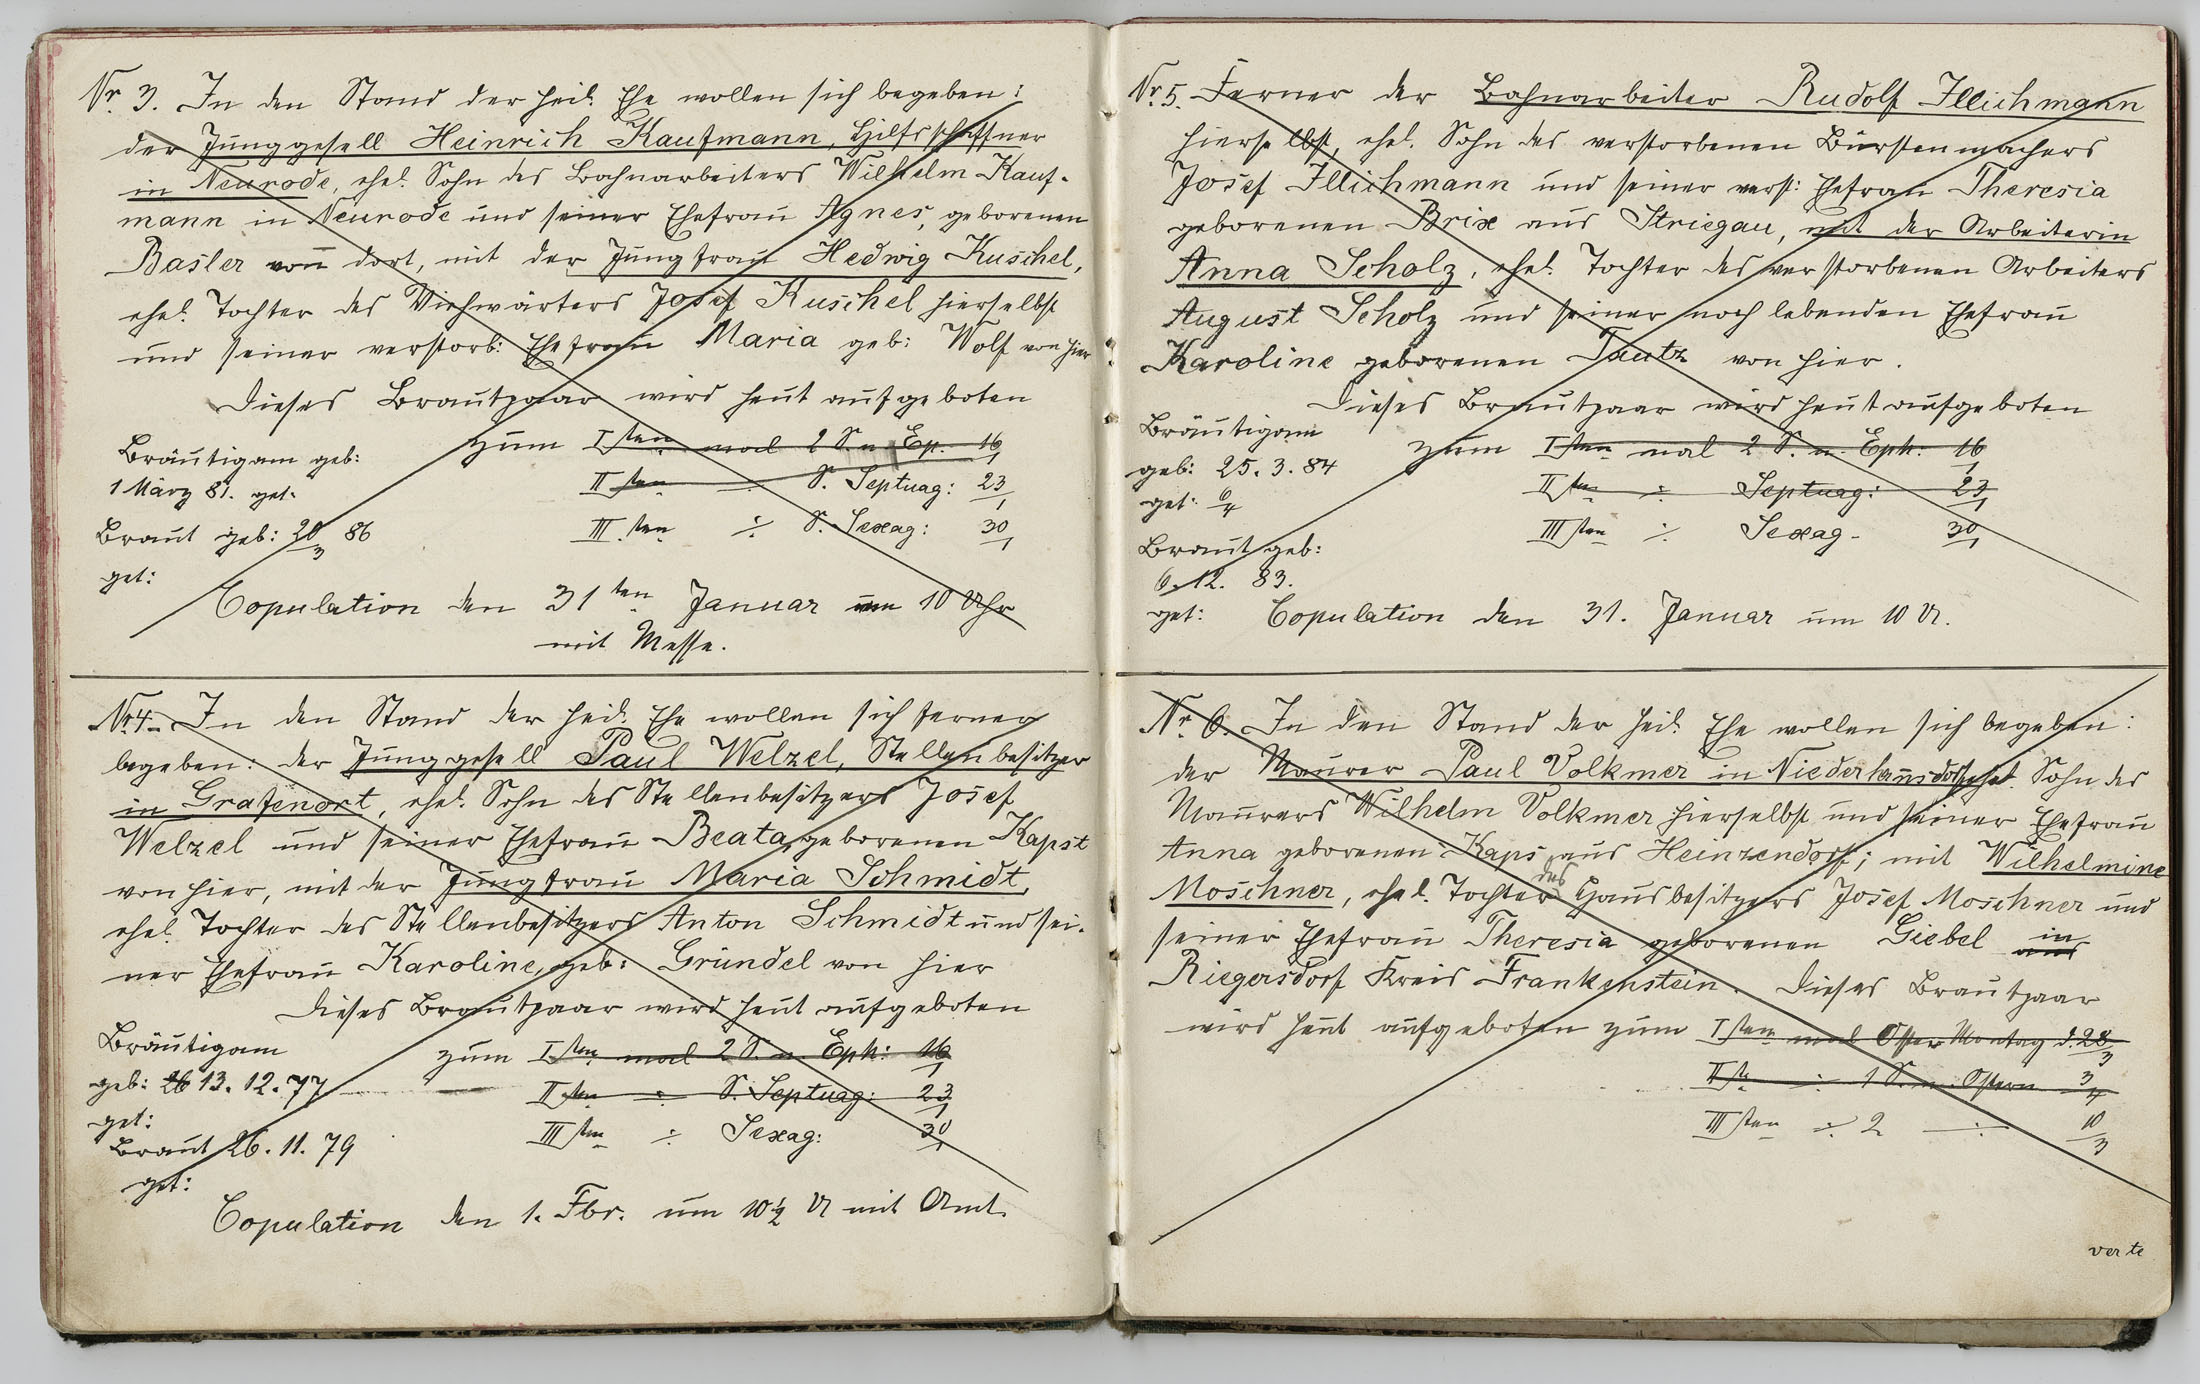 Nr 3. In den Stand der heil. Ehe wollen sich begeben:
der Junggesell Heinrich Kaufmann, Hilfsschaffner
in Neurode, ehel. Sohn des Bahnarbeiters Wilhelm Kauf-
mann in Neurode und seiner Ehefrau Agnes, geborenen
Basler von dort, mit der Jungfrau Hedwig Kuschel,
ehel. Tochter des Viehwärters Josef Kuschel hierselbst
und seiner verstorb: Ehefrau Maria geb: Wolf von hier
Dieses Brautpaar wird heut aufgeboten
zum Isten mal 2 S. n. Ep. 16/1
IIsten ÷ S. Septuag: 23/1
IIIsten ÷ S. Sexag: 30/1
Bräutigam geb:
1 März 81. get:
Braut geb: 20/3 86
get:
Copulation den 31ten Januar um 10 Uhr
mit Messe.
Nr 4. In den Stand der heil. Ehe wollen sich ferner
begeben: der Junggesell Paul Welzel, Stellenbesitzer
in Grafenort, ehel. Sohn des Stellenbesitzers Josef
Welzel und seiner Ehefrau Beata, geborenen Kapst
von hier, mit der Jungfrau Maria Schmidt,
ehel. Tochter des Stellenbesitzers Anton Schmidt und sei-
ner Ehefrau Karoline, geb: Gründel von hier
Dieses Brautpaar wird heut aufgeboten
zum Isten mal 2 S. n. Eph: 16/1
IIsten ÷ S. Septuag: 23/1
IIIsten ÷ Sexag: 30/1
Bräutigam
geb: 13. 12. 77
get:
Braut 26. 11. 79
get:
Copulation den 1. Fbr. um 10½ U mit Amt.
Nr. 5. Ferner der Bahnarbeiter Rudolf Illichmann
hierselbst, ehel. Sohn des verstorbenen Bürstenmachers
Josef Illichmann und seiner verst: Ehefrau Theresia
geborenen Brix aus Striegau, mit der Arbeiterin
Anna Scholz, ehel. Tochter des verstorbenen Arbeiters
August Scholz und seiner noch lebenden Ehefrau
Karoline geborenen Tautz von hier.
Dieses Brautpaar wird heut aufgeboten
zum Isten mal 2 S. n. Eph: 16/1
IIten ÷ Septuag: 23/1
IIIsten ÷ Sexag- 30/1
Bräutigam
geb: 25. 3. 84
get: 6/4
Braut geb:
6. 12. 83.
get:
Copulation den 31. Januar um 10 U.
Nr. 6. In den Stand der heil. Ehe wollen sich begeben:
der Maurer Paul Volkmer in Niederhannsdorf, ehel. Sohn des
Maurers Wilhelm Volkmer hierselbst und seiner Ehefrau
Anna geborenen Kaps aus Heinzendorf; mit Wilhelmine
Moschner, ehel. Tochter des Hausbesitzers Josef Moschner und
seiner Ehefrau Theresia geborenen Giebel aus in
Riegersdorf Kreis Frankenstein. Dieses Brautpaar
wird heut aufgeboten zum Isten mal Oster Montag d. 28/3
IIte ÷ 1 S. n. Ostern 3/4
IIIten ÷ 2 ÷ 10/3
verte